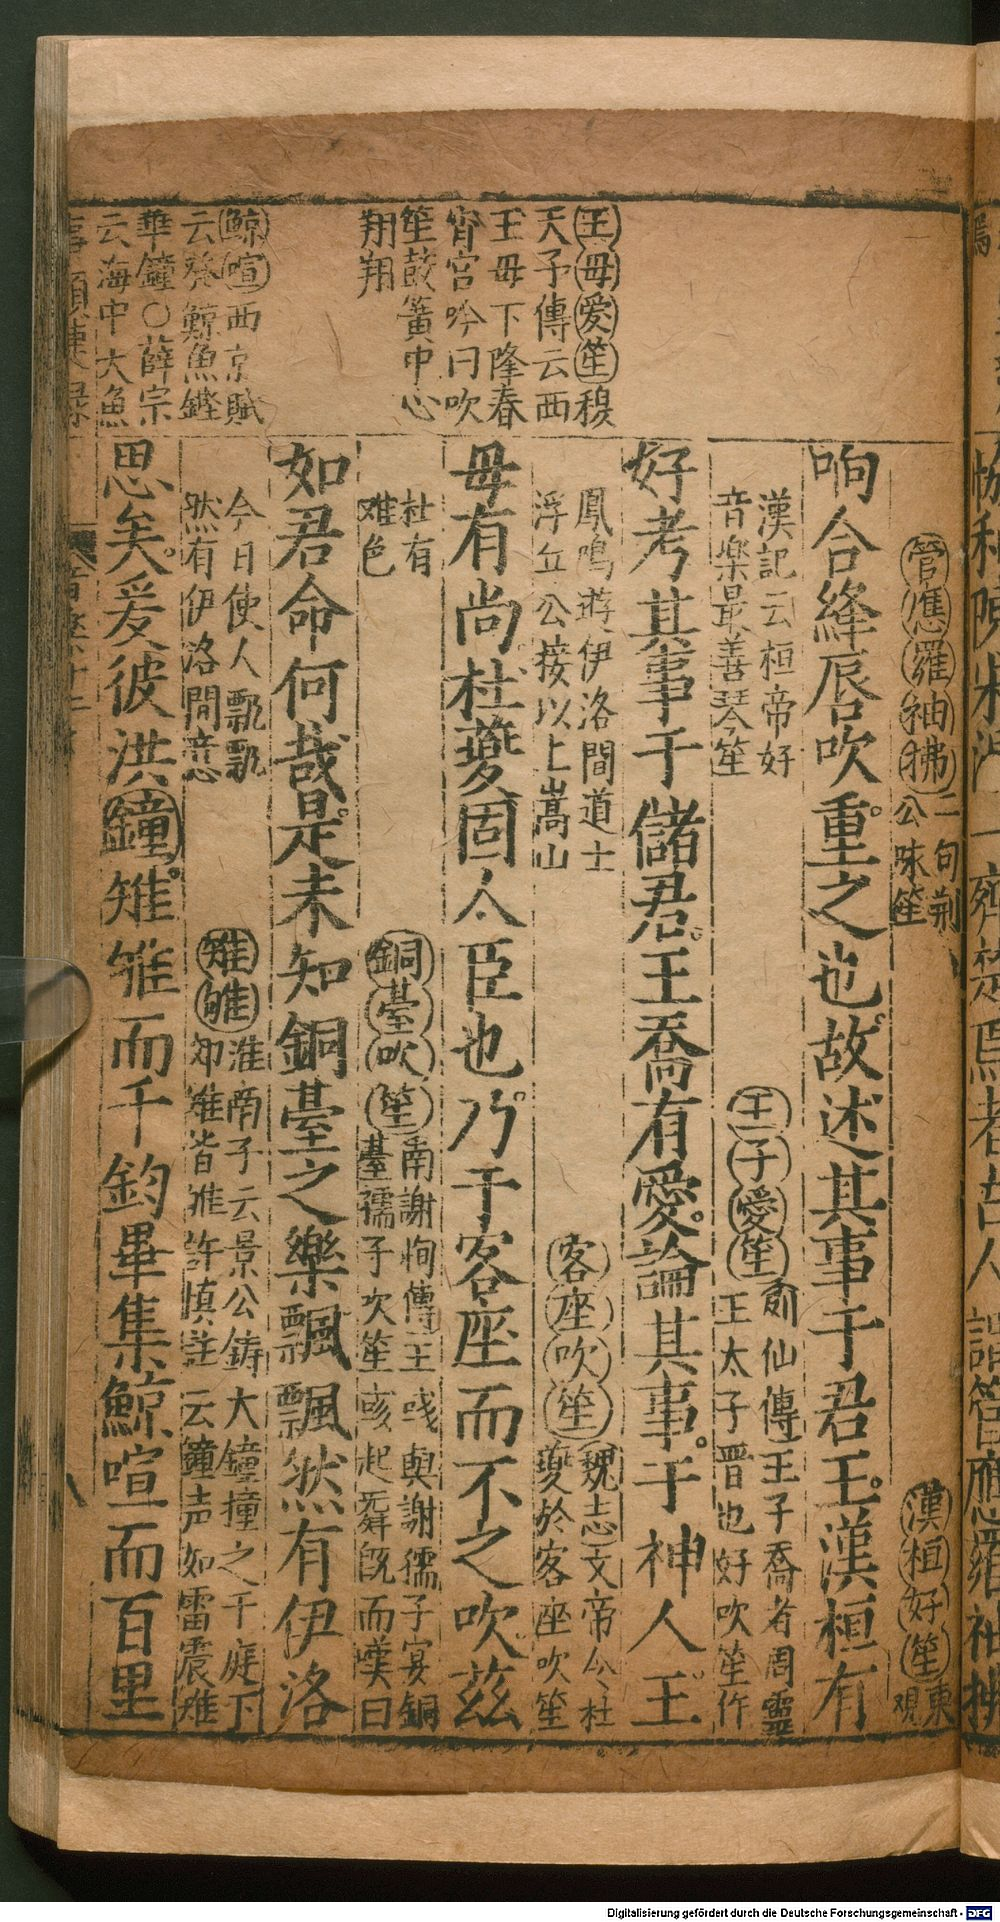 王母愛笙穆
天子傳云西
王母下降春
宵宮吟曰吹
笙鼓簧中心
翔翔
鯨喧西京賦
云發鯨魚鏗
華鐘○薛宗
云海中大魚
管應羅袖拂二句荊
公咏笙
漢桓好笙東
觀
响合絳唇吹重之也故述其事于君王漢桓有
漢記云桓帝好
音楽最善琴笙
王子愛笙列仙傳王子喬者周靈
王太子晋也好吹笙作
好考其事于儲君王喬有愛論其事于神人王
鳳鳴遊伊洛間道士
浮丘公接以上嵩山
客座吹笙魏志文帝令杜
夔於客座吹笙
母有尚杜夔固人臣也乃于客座而不之吹茲
杜有
难色
銅臺吹笙南謝恂傳王彧與謝孺子宴銅
臺孺子吹笙彧起舞旣而嘆曰
如君命何哉是未知銅臺之樂飄飄然有伊洛
今日使人飄飄
然有伊洛間意
雉雊淮南子云景公鋳大鐘撞之于庭下
郊雉皆雊許慎註云鐘声如雷震雉
思矣爰彼洪鐘雉雊而千鈞畢集鯨喧而百里
Digitalisierung gefördert durch die Deutsche Forschungsgemeinschaft - DFG